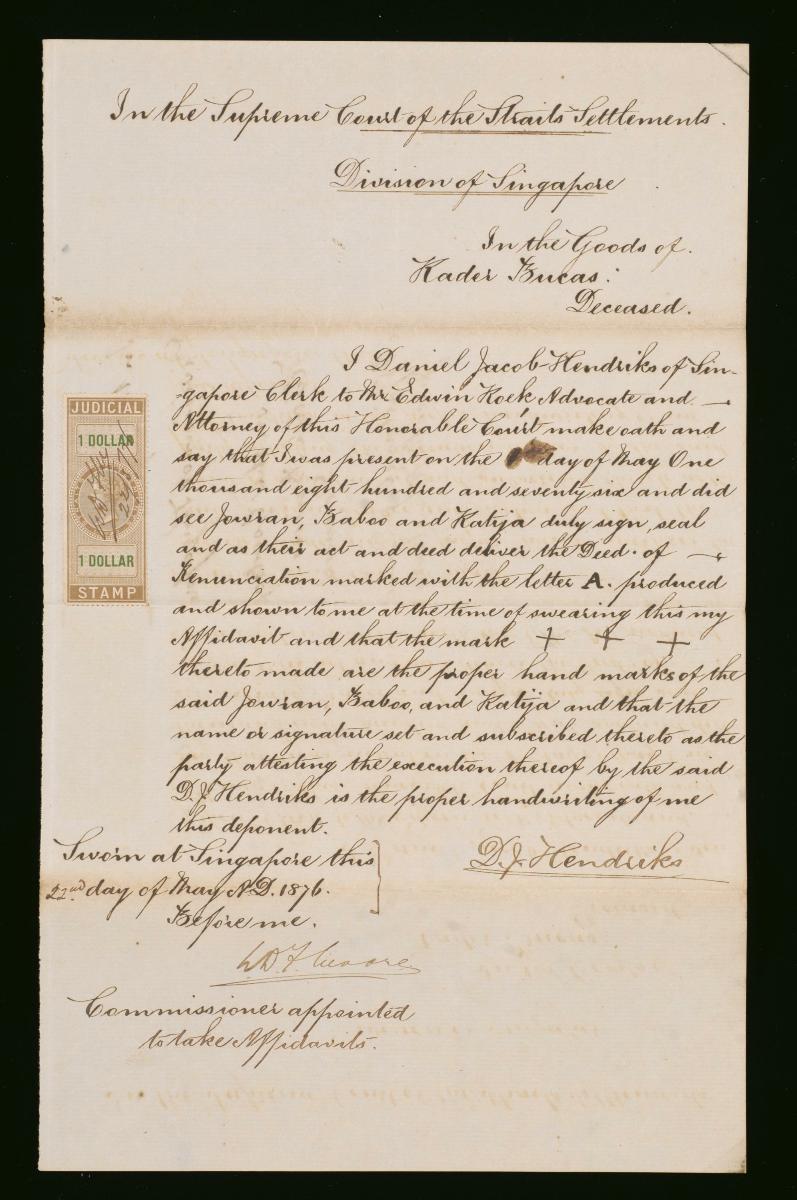 In the Supreme Court of the Straits Settlements.
Division of Singapore
In the Goods of.
Kader Bucas:
Deceased.
I Daniel Jacob Hendriks of Sin-
-gapore Clerk to Mr. Edwin Koek Advocate and
Attorney of this Honorable Court make oath and
say that I was present on the day of May One
thousand eight hundred and seventy six and did
see Jowran, Baboo and Katija duly sign, seal
and as their act and deed deliver the Deed. of
Renunciation marked with the letter A. produced
and shown to me at the time of swearing this my
Affidavit and that the mark + + +
thereto made are the proper hand marks of the
said Jowran, Baboo, and Katija and that the
name or signature set and subscribed thereto as the
party attesting the execution thereof by the said
D. J. Hendriks is the proper handwriting of me
this deponent.
D. J. Hendriks
Sworn at Singapore this
22nd day of May A.D. 1876.
Before me.
Commissioner appointed
to take Affidavits.
JUDICIAL
1 DOLLAR
1 DOLLAR
STAMP